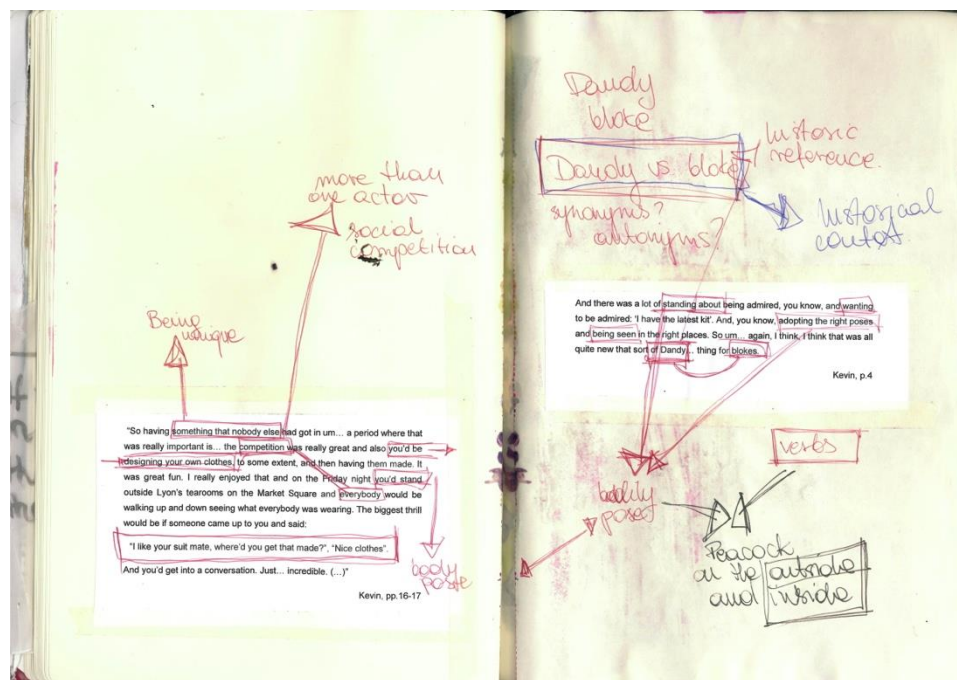 more than
one actor
social
competition
Being
unique
"So having something that nobody else had got in um… a period where that
was really important is… the competition was really great and also you'd be
designing your own clothes, to some extent, and then having them made. It
was great fun. I really enjoyed that and on the Friday night you'd stand
outside Lyon's tearooms on the Market Square and everybody would be
walking up and down seeing what everybody was wearing. The biggest thrill
would be if someone came up to you and said:
"I like your suit mate, where'd you get that made?", "Nice clothes".
And you'd get into a conversation. Just… incredible. (…)"
Kevin, pp.16-17
body
Dandy
bloke
Dandy vs bloke
historic
reference.
synonyms?
antonyms?
historical
And there was a lot of standing about being admired, you know, and wanting
to be admired: 'I have the latest kit'. And, you know, adopting the right poses
and being seen in the right places. So um… again, I think, I think that was all
quite new that sort of Dandy… thing for blokes.
Kevin, p.4
verbs
bodily
poses
Peacock
on the outside
and inside